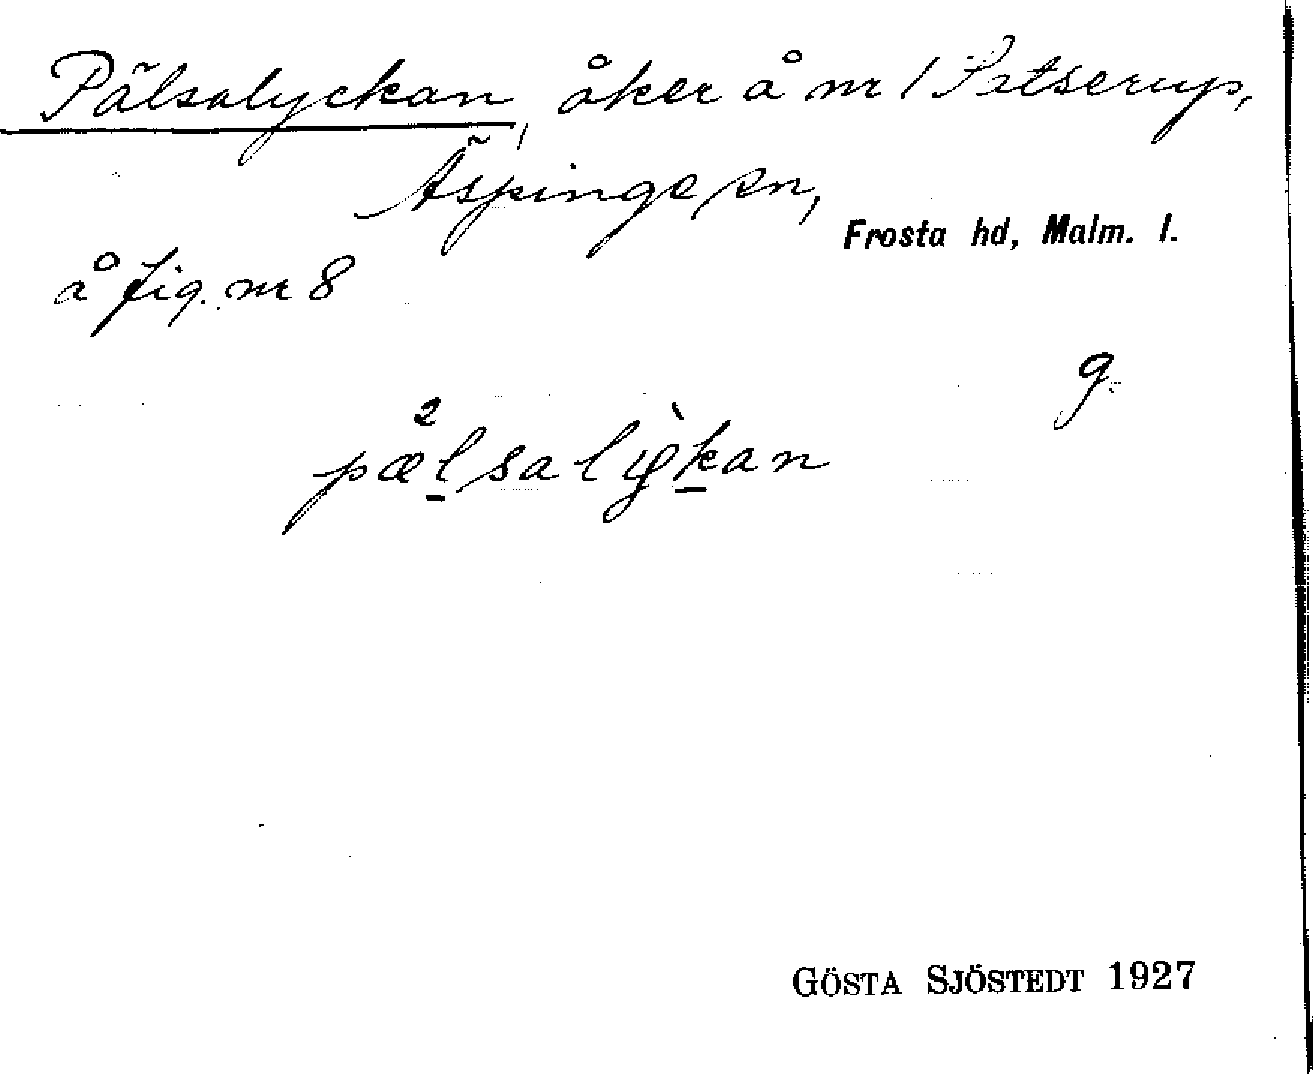 Pälsalyckan, åker å nr 1 Satserup,
Äspinge sn,
Frosta hd, Malm. l.
å fig. nr 8
g.
pælsalykan
GÖSTA SJÖSTEDT 1927